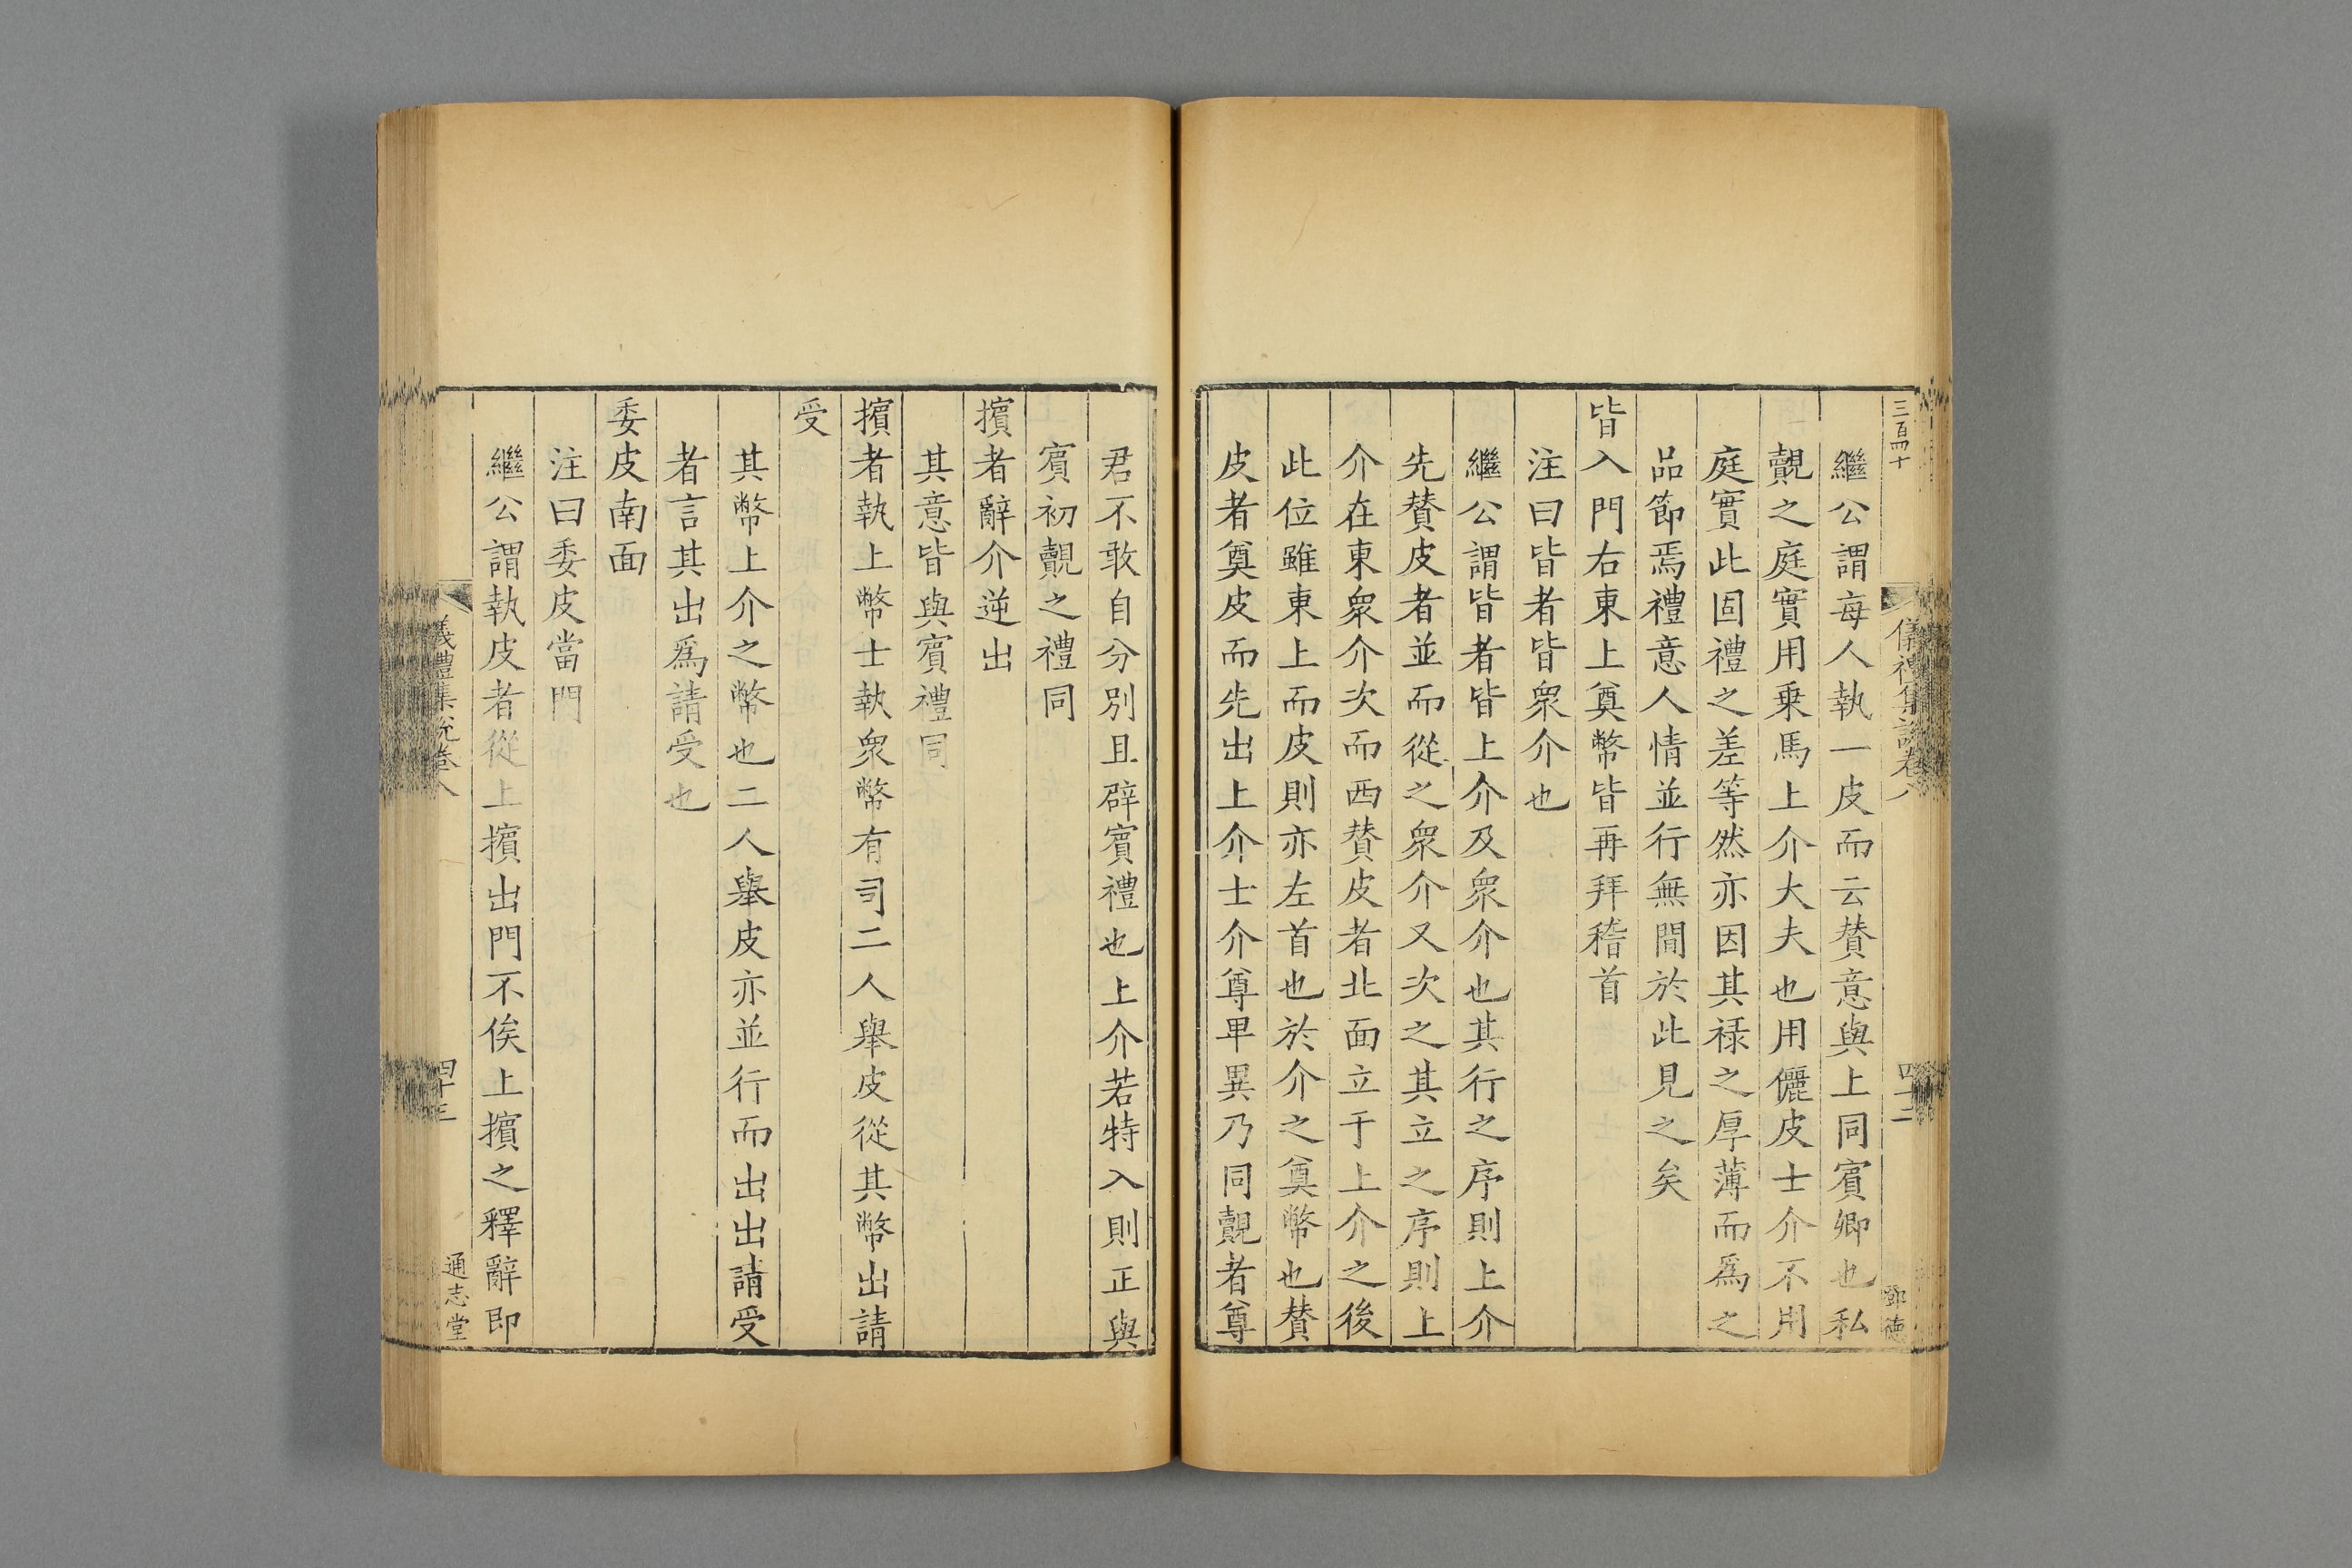 三百四十
儀禮集說卷八
四十二
鄧德
繼公謂每人執一皮而云贊意與上同賓卿也私
覿之庭實用乗馬上介大夫也用儷皮士介不用
庭實此固禮之差等然亦因其禄之厚薄而爲之
品節焉禮意人情並行無間於此見之矣
皆入門右東上奠幣皆再拜稽首
注曰皆者皆衆介也
繼公謂皆者皆上介及衆介也其行之序則上介
先贊皮者並而從之衆介又次之其立之序則上
介在東衆介次而西贊皮者北面立于上介之後
此位雖東上而皮則亦左首也於介之奠幣也贊
皮者奠皮而先出上介士介尊卑異乃同覿者尊
君不敢自分別且辟賓禮也上介若特入則正與
賓初覿之禮同
擯者辭介逆出
其意皆與賓禮同
擯者執上幣士執衆幣有司二人舉皮從其幣出請
受
其幣上介之幣也二人舉皮亦並行而出出請受
者言其出爲請受也
委皮南面
注曰委皮當門
繼公謂執皮者從上擯出門不俟上擯之釋辭即
儀禮集說卷八
四十三
通志堂